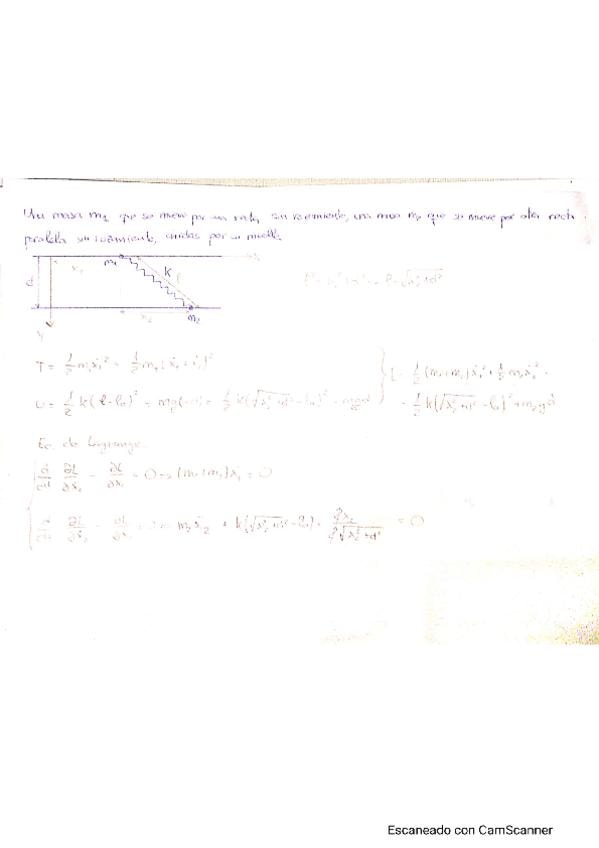 Una masa m₁ que se mueve por una recta, sin rozamiento, una masa m₂ que se mueve por otra recta
paralela sin rozamiento, unidas por un muelle.
m₁ K l
x₁
d
x₂ m₂
y
l² = x₂² + d² → l = √x₂² + d²
T = 1/2 m₁ẋ₁² + 1/2 m₂(ẋ₁ + ẋ₂)²
U = 1/2 k(l - l₀)² = 1/2 k(√x₂² + d² - l₀)² - mgd
L = 1/2 (m₁ + m₂)ẋ₁² + 1/2 m₂ẋ₂² -
- 1/2 k(√x₂² + d² - l₀)² + m₂gd
Ec. de Lagrange.
d/dt ∂L/∂ẋ₁ - ∂L/∂x₁ = 0 → (m₁ + m₂)ẍ₁ = 0
d/dt ∂L/∂ẋ₂ - ∂L/∂x₂ m₂ẍ₂ + k(√x₂² + d² - l₀) · 2x₂/2√x₂² + d² = 0
Escaneado con CamScanner